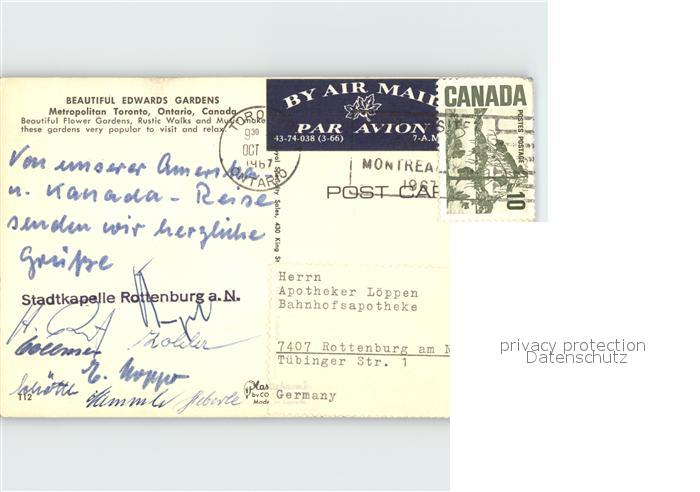 BEAUTIFUL EDWARDS GARDENS
Metropolitan Toronto, Ontario, Canada
Beautiful Flower Gardens, Rustic Walks and Music make
these gardens very popular to visit and relax.
Von unserer Amerika-
u. Kanada - Reise
senden wir herzliche
Grüße
Stadtkapelle Rottenburg a. N.
112
TORONTO
9 30
OCT
1967
ONTARIO
BY AIR MAIL
PAR AVION
43-74-038 (3-66) 7-A.M
MONTREA
1967
CANADA
POSTES POSTAGE
10
POST CAR
Specialty Sales, 430 King St
Herrn
Apotheker Löppen
Bahnhofsapotheke
7407 Rottenburg am N
Tübinger Str. 1
Germany
Plas
by CO
Made
privacy protection
Datenschutz